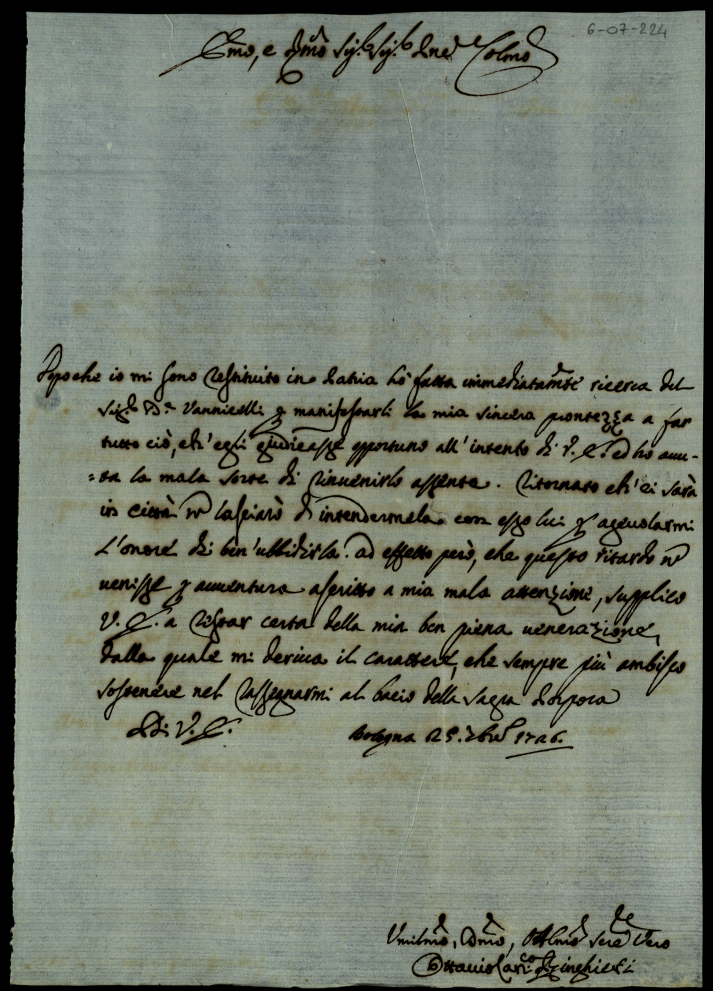 6-07-224
Emo, e Rmo Sig.r Sig.r Pne Colmo
Dopo che io mi sono restituito in Patria hò fatta immediatamte ricerca del
Sig.r Vannicelli p manifestarli la mia sincera prontezza a far
tutto ciò, ch'egli giudicasse opportuno all'intento di V. E. ed hò avu-
=ta la mala sorte di rinvenirlo assente. Ritornato ch'ei sarà
in città nō lasciarò d'intendermela con esso lui p agevolarmi
l'onore di ben'ubbidirla. ad effetto però, che questo ritardo nō
venisse p avventura ascritto a mia mala attenzione, supplico
V. E. a restar certa della mia ben piena venerazione,
dalla quale mi deriva il carattere, che sempre più ambisco
sostenere nel rassegnarmi al bacio della Sagra Porpora
Di V. E. Bologna 25. 1726.
Umilmo, Dmo, Obblmo Serre Vero
Ottavio